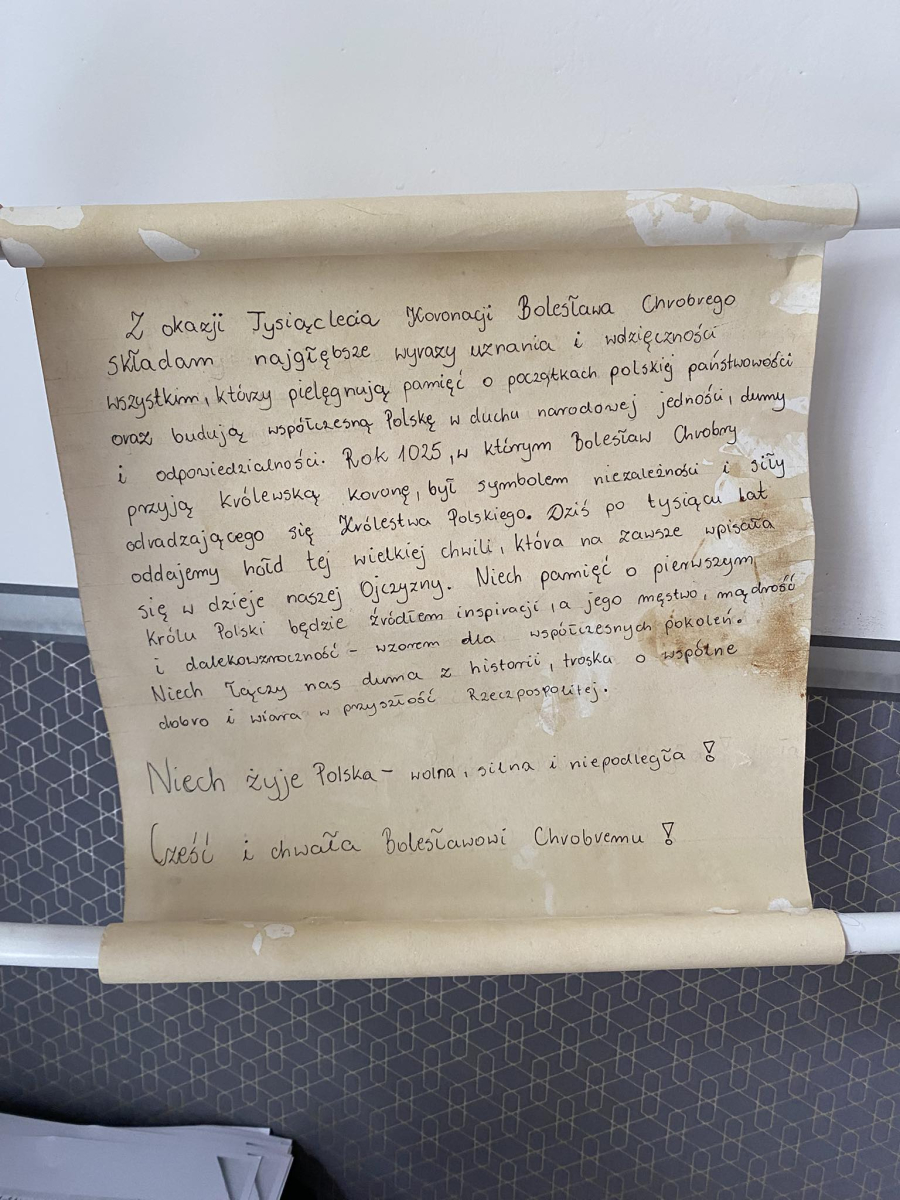 Z okazji Tysiąclecia Koronacji Bolesława Chrobrego
składam najgłębsze wyrazy uznania i wdzięczności
wszystkim, którzy pielęgnują pamięć o początkach polskiej państwowości
oraz budują współczesną Polskę w duchu narodowej jedności, dumy
i odpowiedzialności. Rok 1025, w którym Bolesław Chrobry
przyją królewską koronę, był symbolem niezależności i siły
odradzającego się Królestwa Polskiego. Dziś po tysiącu lat
oddajemy hołd tej wielkiej chwili, która na zawsze wpisała
się w dzieje naszej Ojczyzny. Niech pamięć o pierwszym
królu Polski będzie źródłem inspiracji, a jego męstwo, mądrość
i dalekowzroczność - wzorem dla współczesnych pokoleń.
Niech łączy nas duma z historii, troska o wspólne
dobro i wiara w przyszłość Rzeczpospolitej.
Niech żyje Polska - wolna, silna i niepodległa!
Cześć i chwała Bolesławowi Chrobremu!